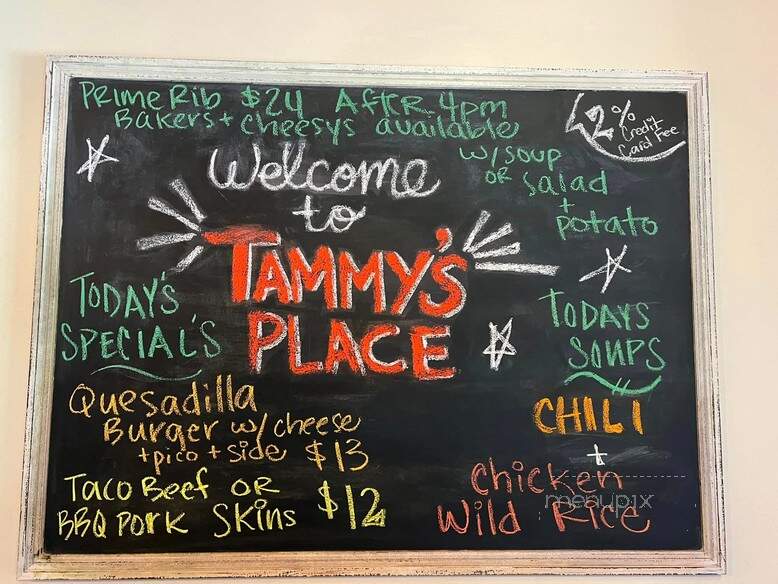 Prime Rib $24 After 4pm
Bakers + cheesys available
2% Credit Card Fee
w/soup
or salad
+
potato
Welcome
to
TAMMY'S
PLACE
TODAY'S
SPECIAL'S
Quesadilla
Burger w/ cheese
+pico + side $13
Taco Beef OR
BBQ Pork Skins $12
TODAYS
SOUPS
CHILI
+
Chicken
Wild Rice
menupix